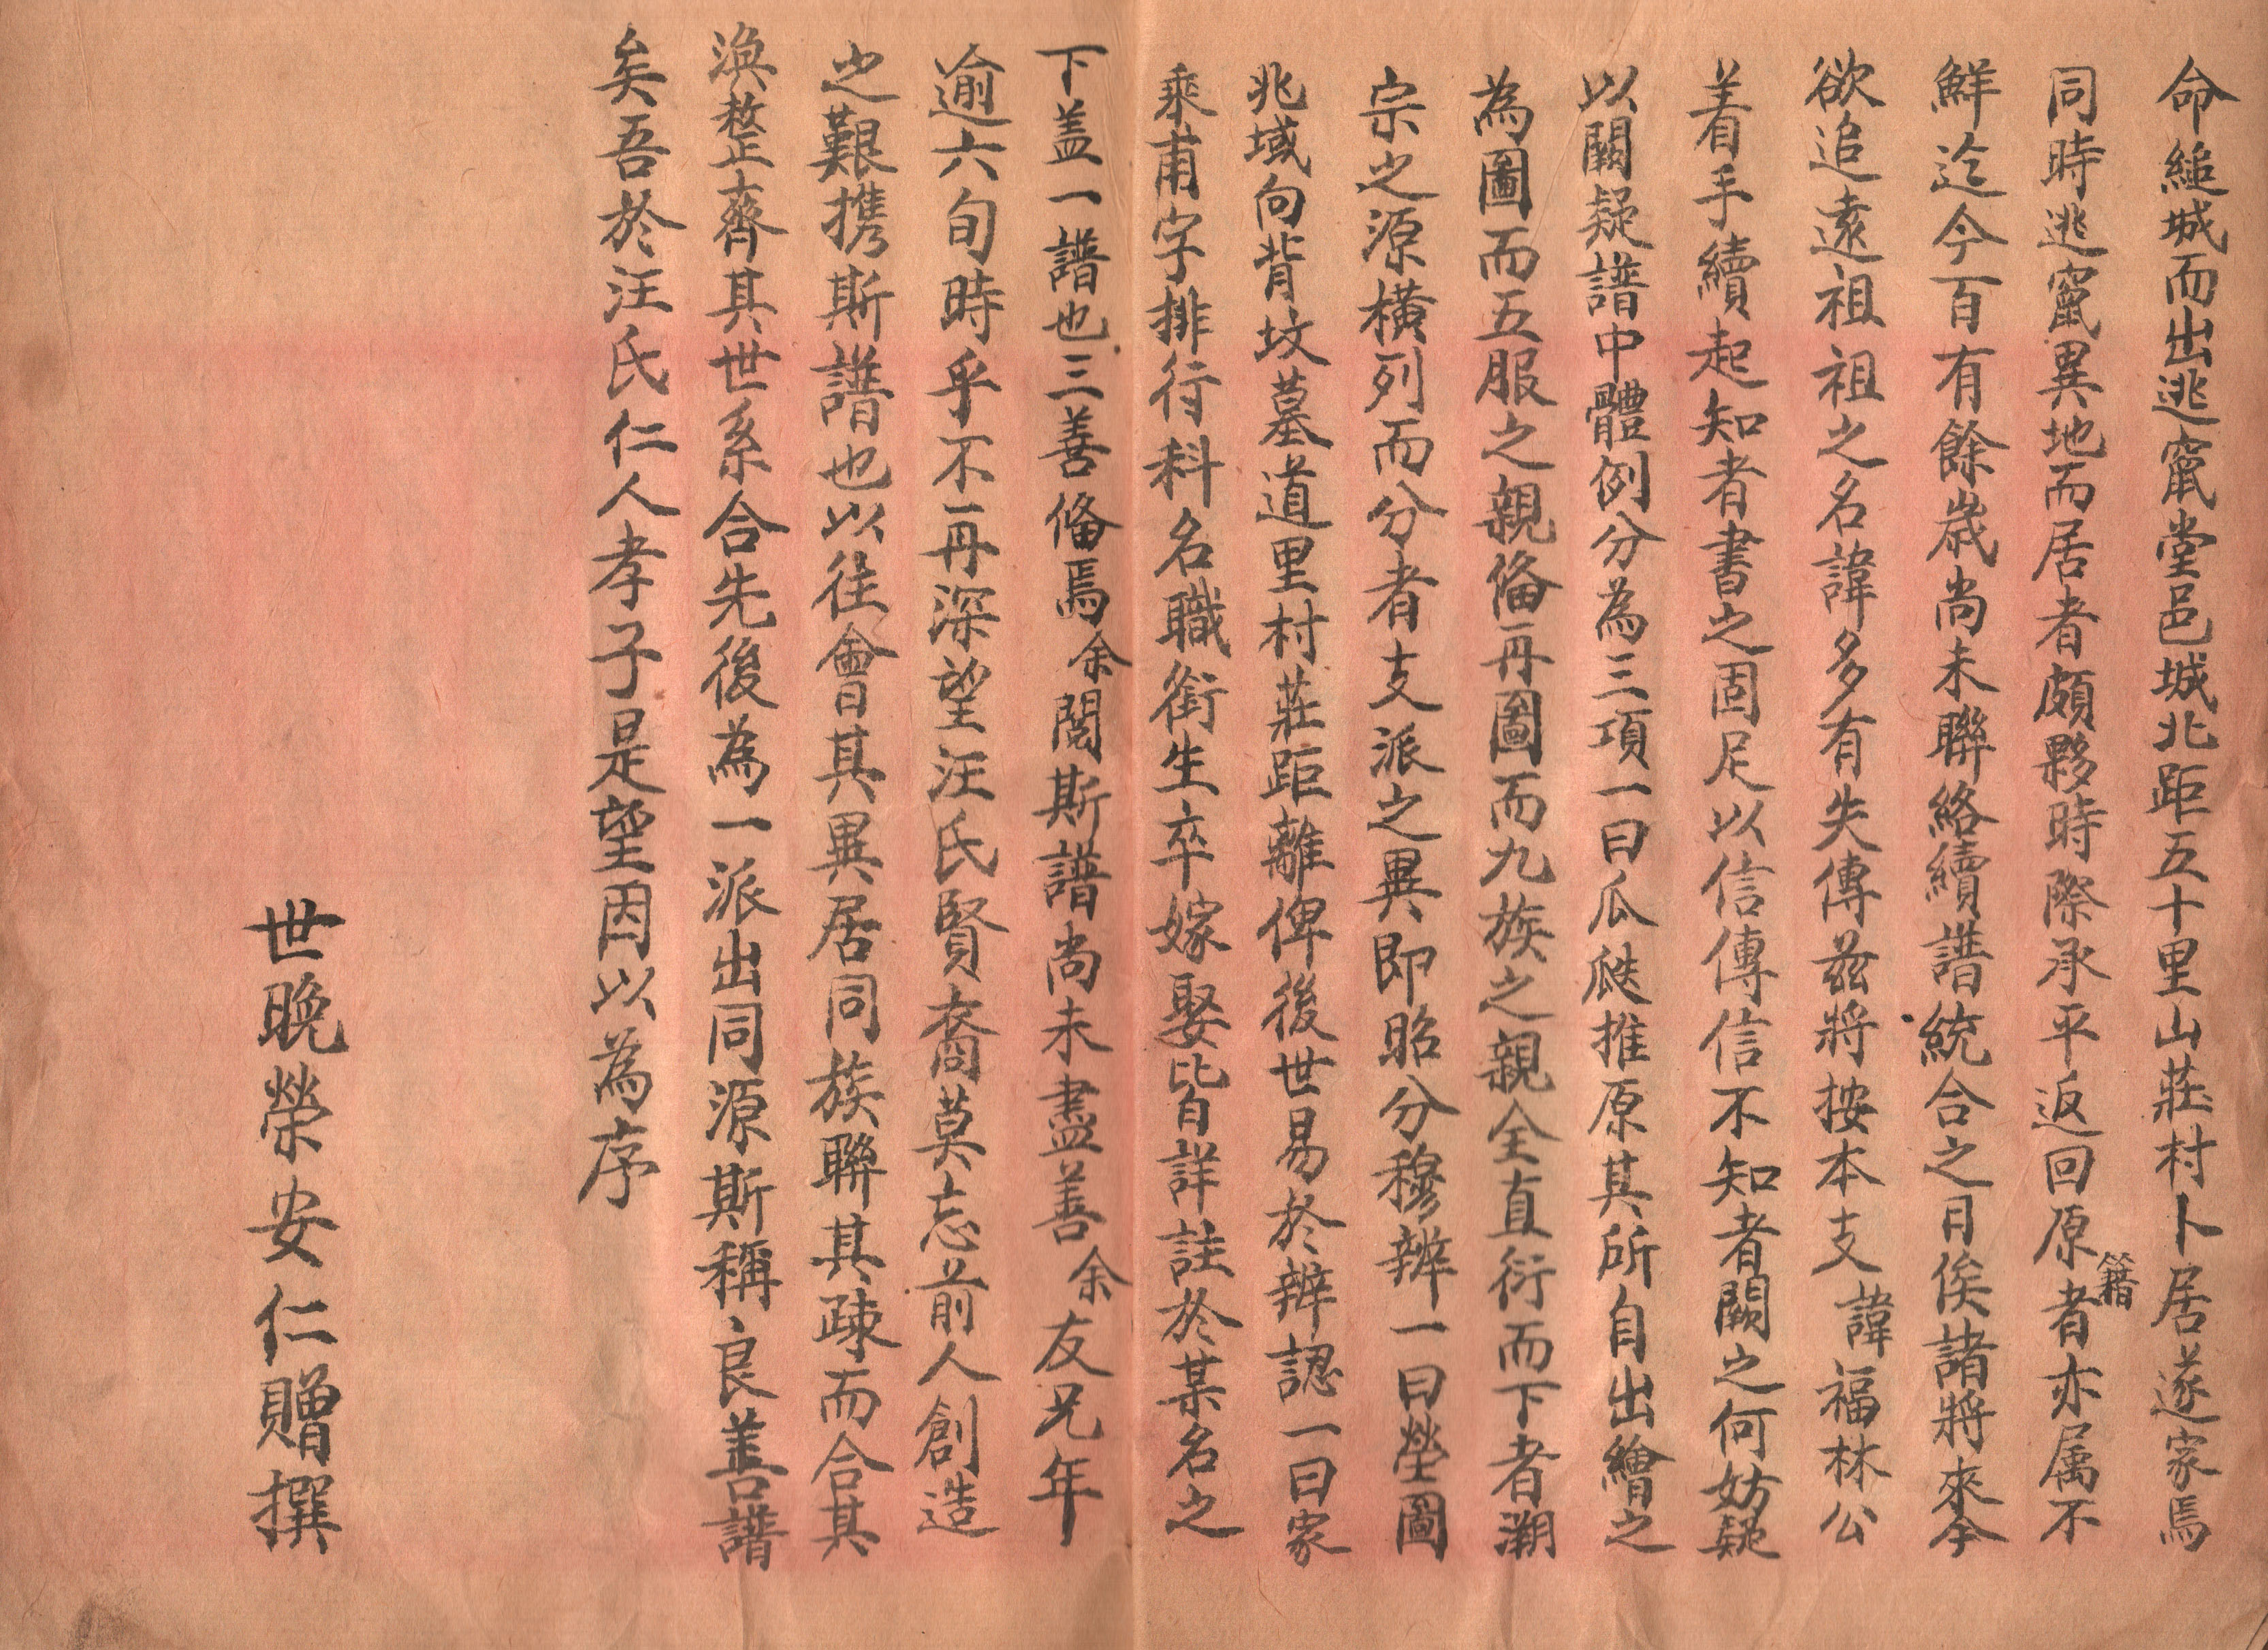 命縋城而出逃竄堂邑城北距五十里山莊村卜居遂家焉
同時逃竄異地而居者頗夥時際承平返回原籍者亦属不
鮮迄今百有餘歲尚未聯絡續譜統合之日俟諸將來今
欲追遠祖祖之名諱多有失傳兹將按本支諱福林公
着手續起知者書之固足以信傳信不知者闕之何妨疑
以闕疑譜中體例分為三項一曰瓜瓞推原其所自出繪之
為圖而五服之親俻再圖而九族之親全直衍而下者溯
宗之源橫列而分者支派之異即昭分穆辨一曰塋圖
兆域向背坟墓道里村莊距離俾後世易於辨認一曰家
乘甫字排行科名職銜生卒嫁娶皆詳註於某名之
下盖一譜也三善俻焉余閱斯譜尚未盡善余友兄年
逾六旬時乎不再深望汪氏賢裔莫忘前人創造
之艱携斯譜也以往會其異居同族聯其疎而合其
渙整齊其世系合先後為一派出同源斯稱良善譜
矣吾於汪氏仁人孝子是望因以為序
世晚榮安仁贈撰